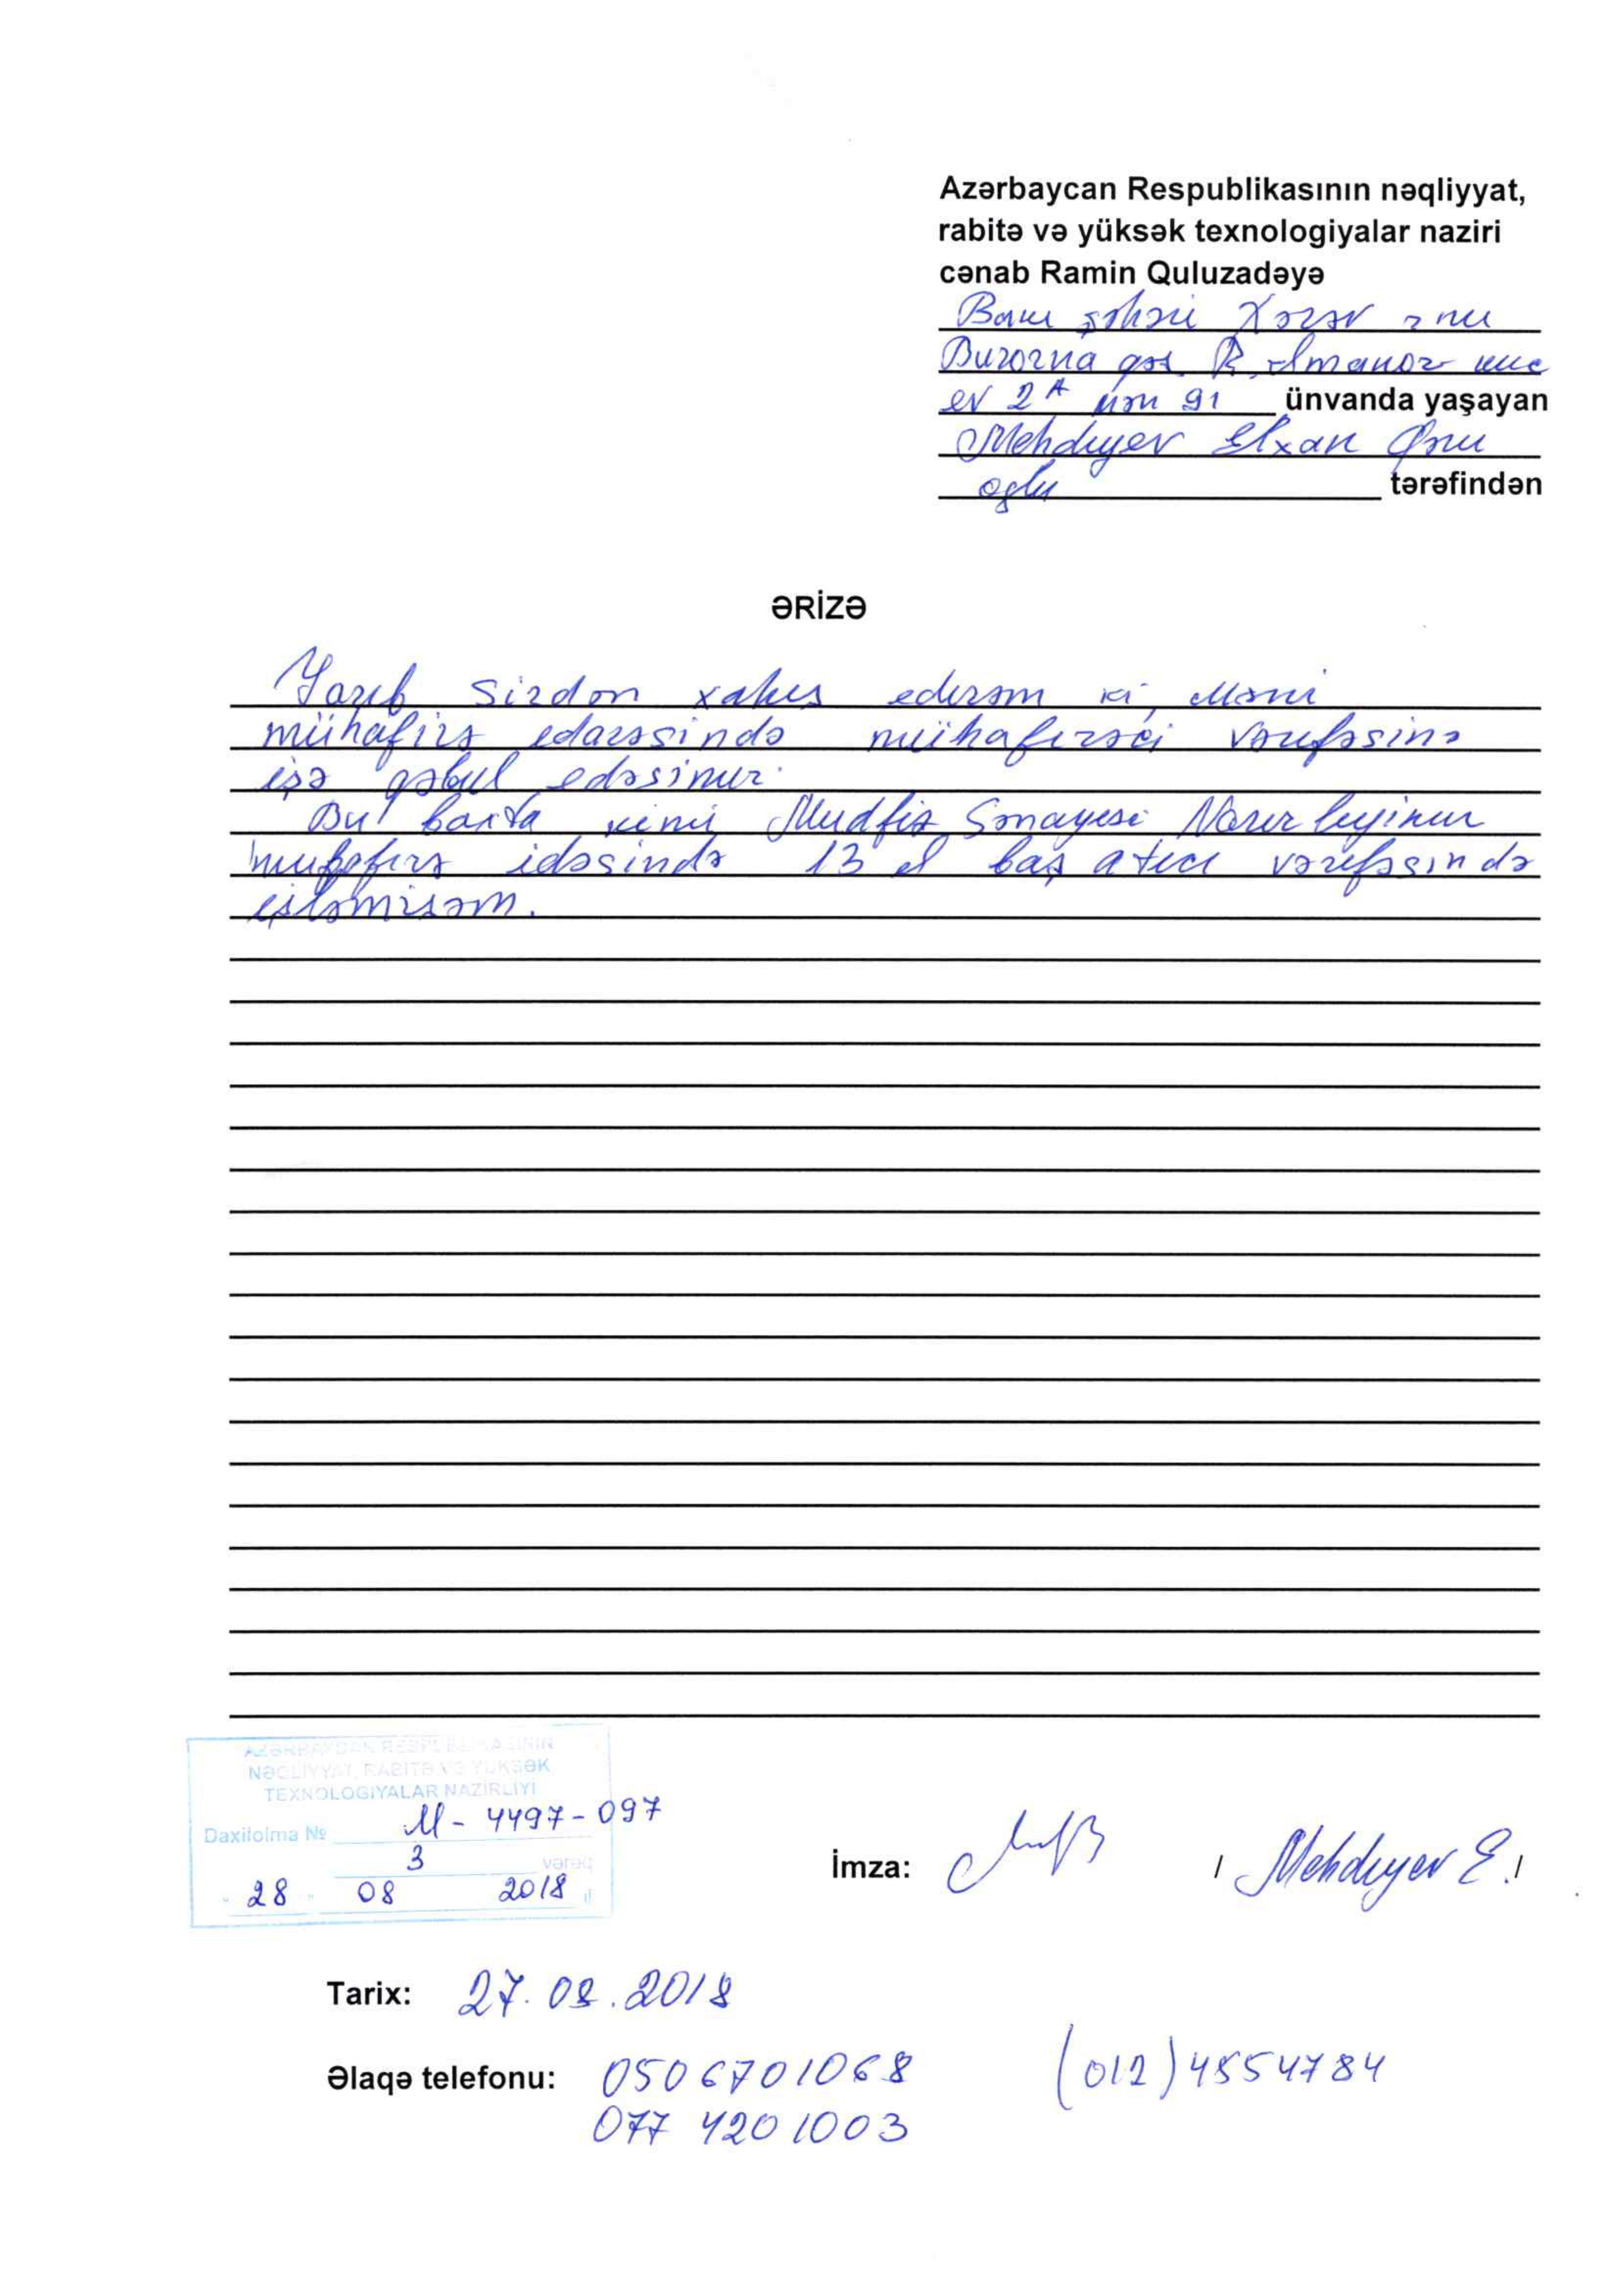 Azərbaycan Respublikasının nəqliyyat,
rabitə və yüksək texnologiyalar naziri
cənab Ramin Quluzadəyə
Bakı şəhəri Xəzər
Buzovna qəs. R.
ev 2A mən 91 ünvanda yaşayan
Mehdiyev Elxan
oglu tərəfindən
ƏRİZƏ
Yazıb Sizdən xahış edirəm ki, Məni
mühafizə edarəsində mühafizəçi vəzifəsinə
işə qəbul edəsiniz.
Bu baxta kimi Mudfiə Sənayesi Nazirliyinin
muhafizə idəsində 13 il baş atıcı vəzifəsində
işləmişəm.
AZƏRBAYCAN RESPUBLİKASININ
NƏQLİYYAT, RABİTƏ VƏ YÜKSƏK
TEXNOLOGİYALAR NAZİRLİYİ
Daxilolma № M-4497-097
3 vərəq
" 28 " 08 2018 il
İmza: / Mehdiyev E. /
Tarix: 27.08.2018
Əlaqə telefonu: 0506701068 (012)4554784
077 4201003